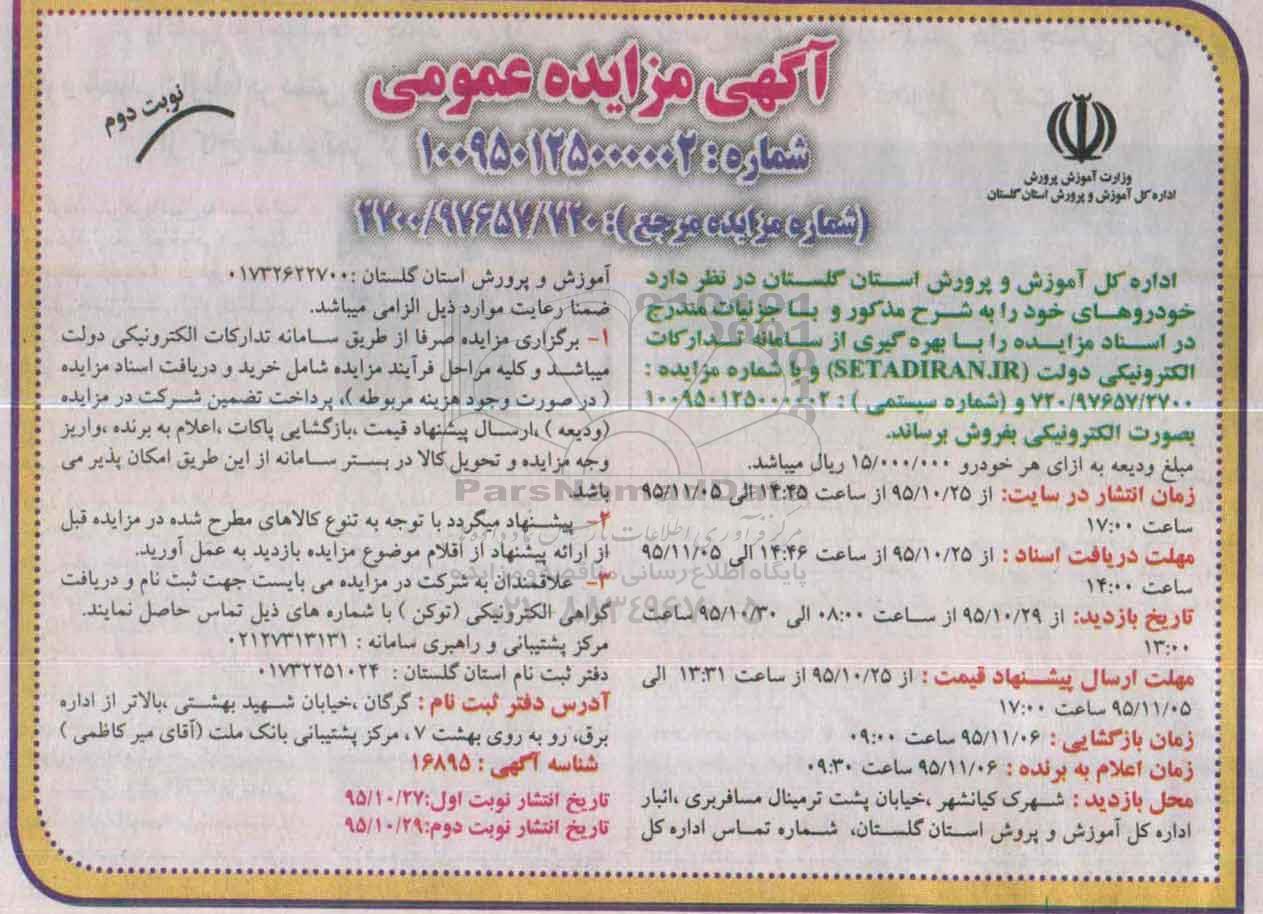 آگهی مزایده عمومی
شماره: ۱۰۰۹۵۰۱۲۵۰۰۰۰۰۲
(شماره مزایده مرجع ): ۲۷۰۰/۹۷۶۵۷/۷۲۰
نوبت دوم
وزارت آموزش پرورش
اداره کل آموزش و پرورش استان گلستان
اداره کل آموزش و پرورش استان گلستان در نظر دارد
خودروهای خود را به شرح مذکور و با جزئیات مندرج
در اسناد مزایده را با بهره گیری از سامانه تدارکات
الکترونیکی دولت (SETADIRAN.IR) و با شماره مزایده :
۷۲۰/۹۷۶۵۷/۲۷۰۰ و (شماره سیستمی ) : ۱۰۰۹۵۰۱۲۵۰۰۰۰۰۲
بصورت الکترونیکی بفروش برساند.
مبلغ ودیعه به ازای هر خودرو ۱۵/۰۰۰/۰۰۰ ریال میباشد.
زمان انتشار در سایت: از ۹۵/۱۰/۲۵ از ساعت ۱۴:۴۵ الی ۹۵/۱۱/۰۵
ساعت ۱۷:۰۰
مهلت دریافت اسناد : از ۹۵/۱۰/۲۵ از ساعت ۱۴:۴۶ الی ۹۵/۱۱/۰۵
ساعت ۱۴:۰۰
تاریخ بازدید: از ۹۵/۱۰/۲۹ از ساعت ۰۸:۰۰ الی ۹۵/۱۰/۳۰ ساعت
۱۳:۰۰
مهلت ارسال پیشنهاد قیمت : از ۹۵/۱۰/۲۵ از ساعت ۱۳:۳۱ الی
۹۵/۱۱/۰۵ ساعت ۱۷:۰۰
زمان بازگشایی : ۹۵/۱۱/۰۶ ساعت ۰۹:۰۰
زمان اعلام به برنده : ۹۵/۱۱/۰۶ ساعت ۰۹:۳۰
محل بازدید : شهرک کیانشهر ،خیابان پشت ترمینال مسافربری ،انبار
اداره کل آموزش و پروش استان گلستان، شماره تماس اداره کل
آموزش و پرورش استان گلستان :۰۱۷۳۲۶۲۲۷۰۰
ضمنا رعایت موارد ذیل الزامی میباشد.
۱- برگزاری مزایده صرفا از طریق سامانه تدارکات الکترونیکی دولت
میباشد و کلیه مراحل فرآیند مزایده شامل خرید و دریافت اسناد مزایده
( در صورت وجود هزینه مربوطه )، پرداخت تضمین شرکت در مزایده
(ودیعه ) ،ارسال پیشنهاد قیمت ،بازگشایی پاکات ،اعلام به برنده ،واریز
وجه مزایده و تحویل کالا در بستر سامانه از این طریق امکان پذیر می
باشد.
۲- پیشنهاد میگردد با توجه به تنوع کالاهای مطرح شده در مزایده قبل
از ارائه پیشنهاد از اقلام موضوع مزایده بازدید به عمل آورید.
۳- علاقمندان به شرکت در مزایده می بایست جهت ثبت نام و دریافت
گواهی الکترونیکی (توکن ) با شماره های ذیل تماس حاصل نمایند.
مرکز پشتیبانی و راهبری سامانه : ۰۲۱۲۷۳۱۳۱۳۱
دفتر ثبت نام استان گلستان : ۰۱۷۳۲۲۵۱۰۲۴
آدرس دفتر ثبت نام : گرگان ،خیابان شهید بهشتی ،بالاتر از اداره
برق، رو به روی بهشت ۷ ، مرکز پشتیبانی بانک ملت (آقای میر کاظمی )
شناسه آگهی : ۱۶۸۹۵
تاریخ انتشار نوبت اول:۹۵/۱۰/۲۷
تاریخ انتشار نوبت دوم:۹۵/۱۰/۲۹
ParsNamadData
پایگاه اطلاع رسانی مناقصه و مزایده